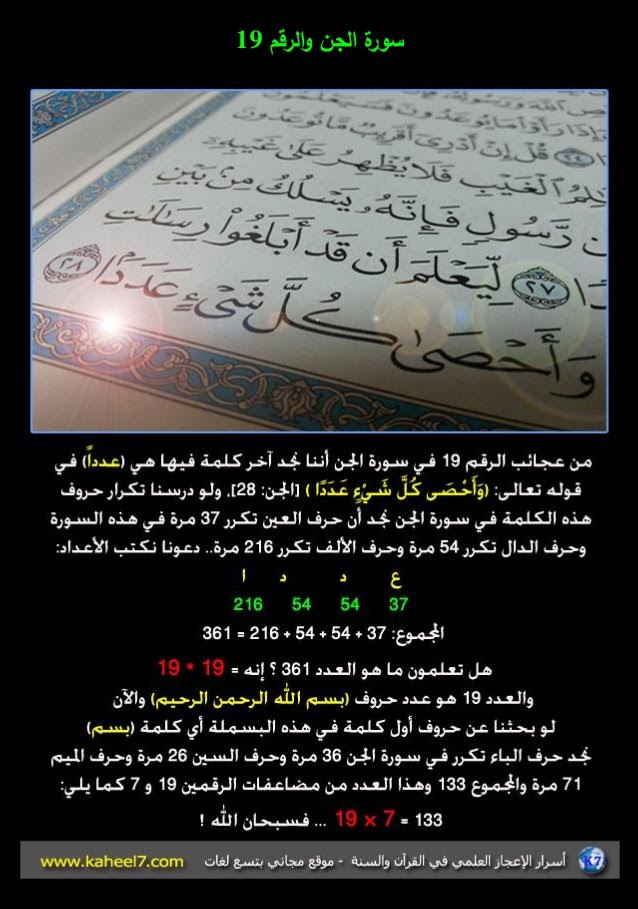 سورة الجن والرقم 19
وَإِذَا رَأَوْا مَا يُوعَدُونَ فَسَيَعْلَمُونَ
قُلْ إِنْ أَدْرِي أَقَرِيبٌ مَّا تُوعَدُونَ
عَٰلِمُ الْغَيْبِ فَلَا يُظْهِرُ عَلَىٰ غَيْبِهِ
مِن رَّسُولٍ فَإِنَّهُ يَسْلُكُ مِنْ بَيْنِ
٢٧ لِّيَعْلَمَ أَن قَدْ أَبْلَغُوا رِسَٰلَٰتِ
وَأَحْصَىٰ كُلَّ شَيْءٍ عَدَدًا ٢٨
من عجائب الرقم 19 في سورة الجن أننا نجد آخر كلمة فيها هي (عدداً) في
قوله تعالى: (وَأَحْصَى كُلَّ شَيْءٍ عَدَدًا ) [الجن: 28]، ولو درسنا تكرار حروف
هذه الكلمة في سورة الجن نجد أن حرف العين تكرر 37 مرة في هذه السورة
وحرف الدال تكرر 54 مرة وحرف الألف تكرر 216 مرة.. دعونا نكتب الأعداد:
ع د د ا
37 54 54 216
المجموع: 37 + 54 + 54 + 216 = 361
هل تعلمون ما هو العدد 361 ؟ إنه = 19 * 19
والعدد 19 هو عدد حروف (بسم الله الرحمن الرحيم) والآن
لو بحثنا عن حروف أول كلمة في هذه البسملة أي كلمة (بسم)
نجد حرف الباء تكرر في سورة الجن 36 مرة وحرف السين 26 مرة وحرف الميم
71 مرة والمجموع 133 وهذا العدد من مضاعفات الرقمين 19 و 7 كما يلي:
133 = 19 × 7 ... فسبحان الله !
K7 أسرار الإعجاز العلمي في القرآن والسنة - موقع مجاني بتسع لغات www.kaheel7.com